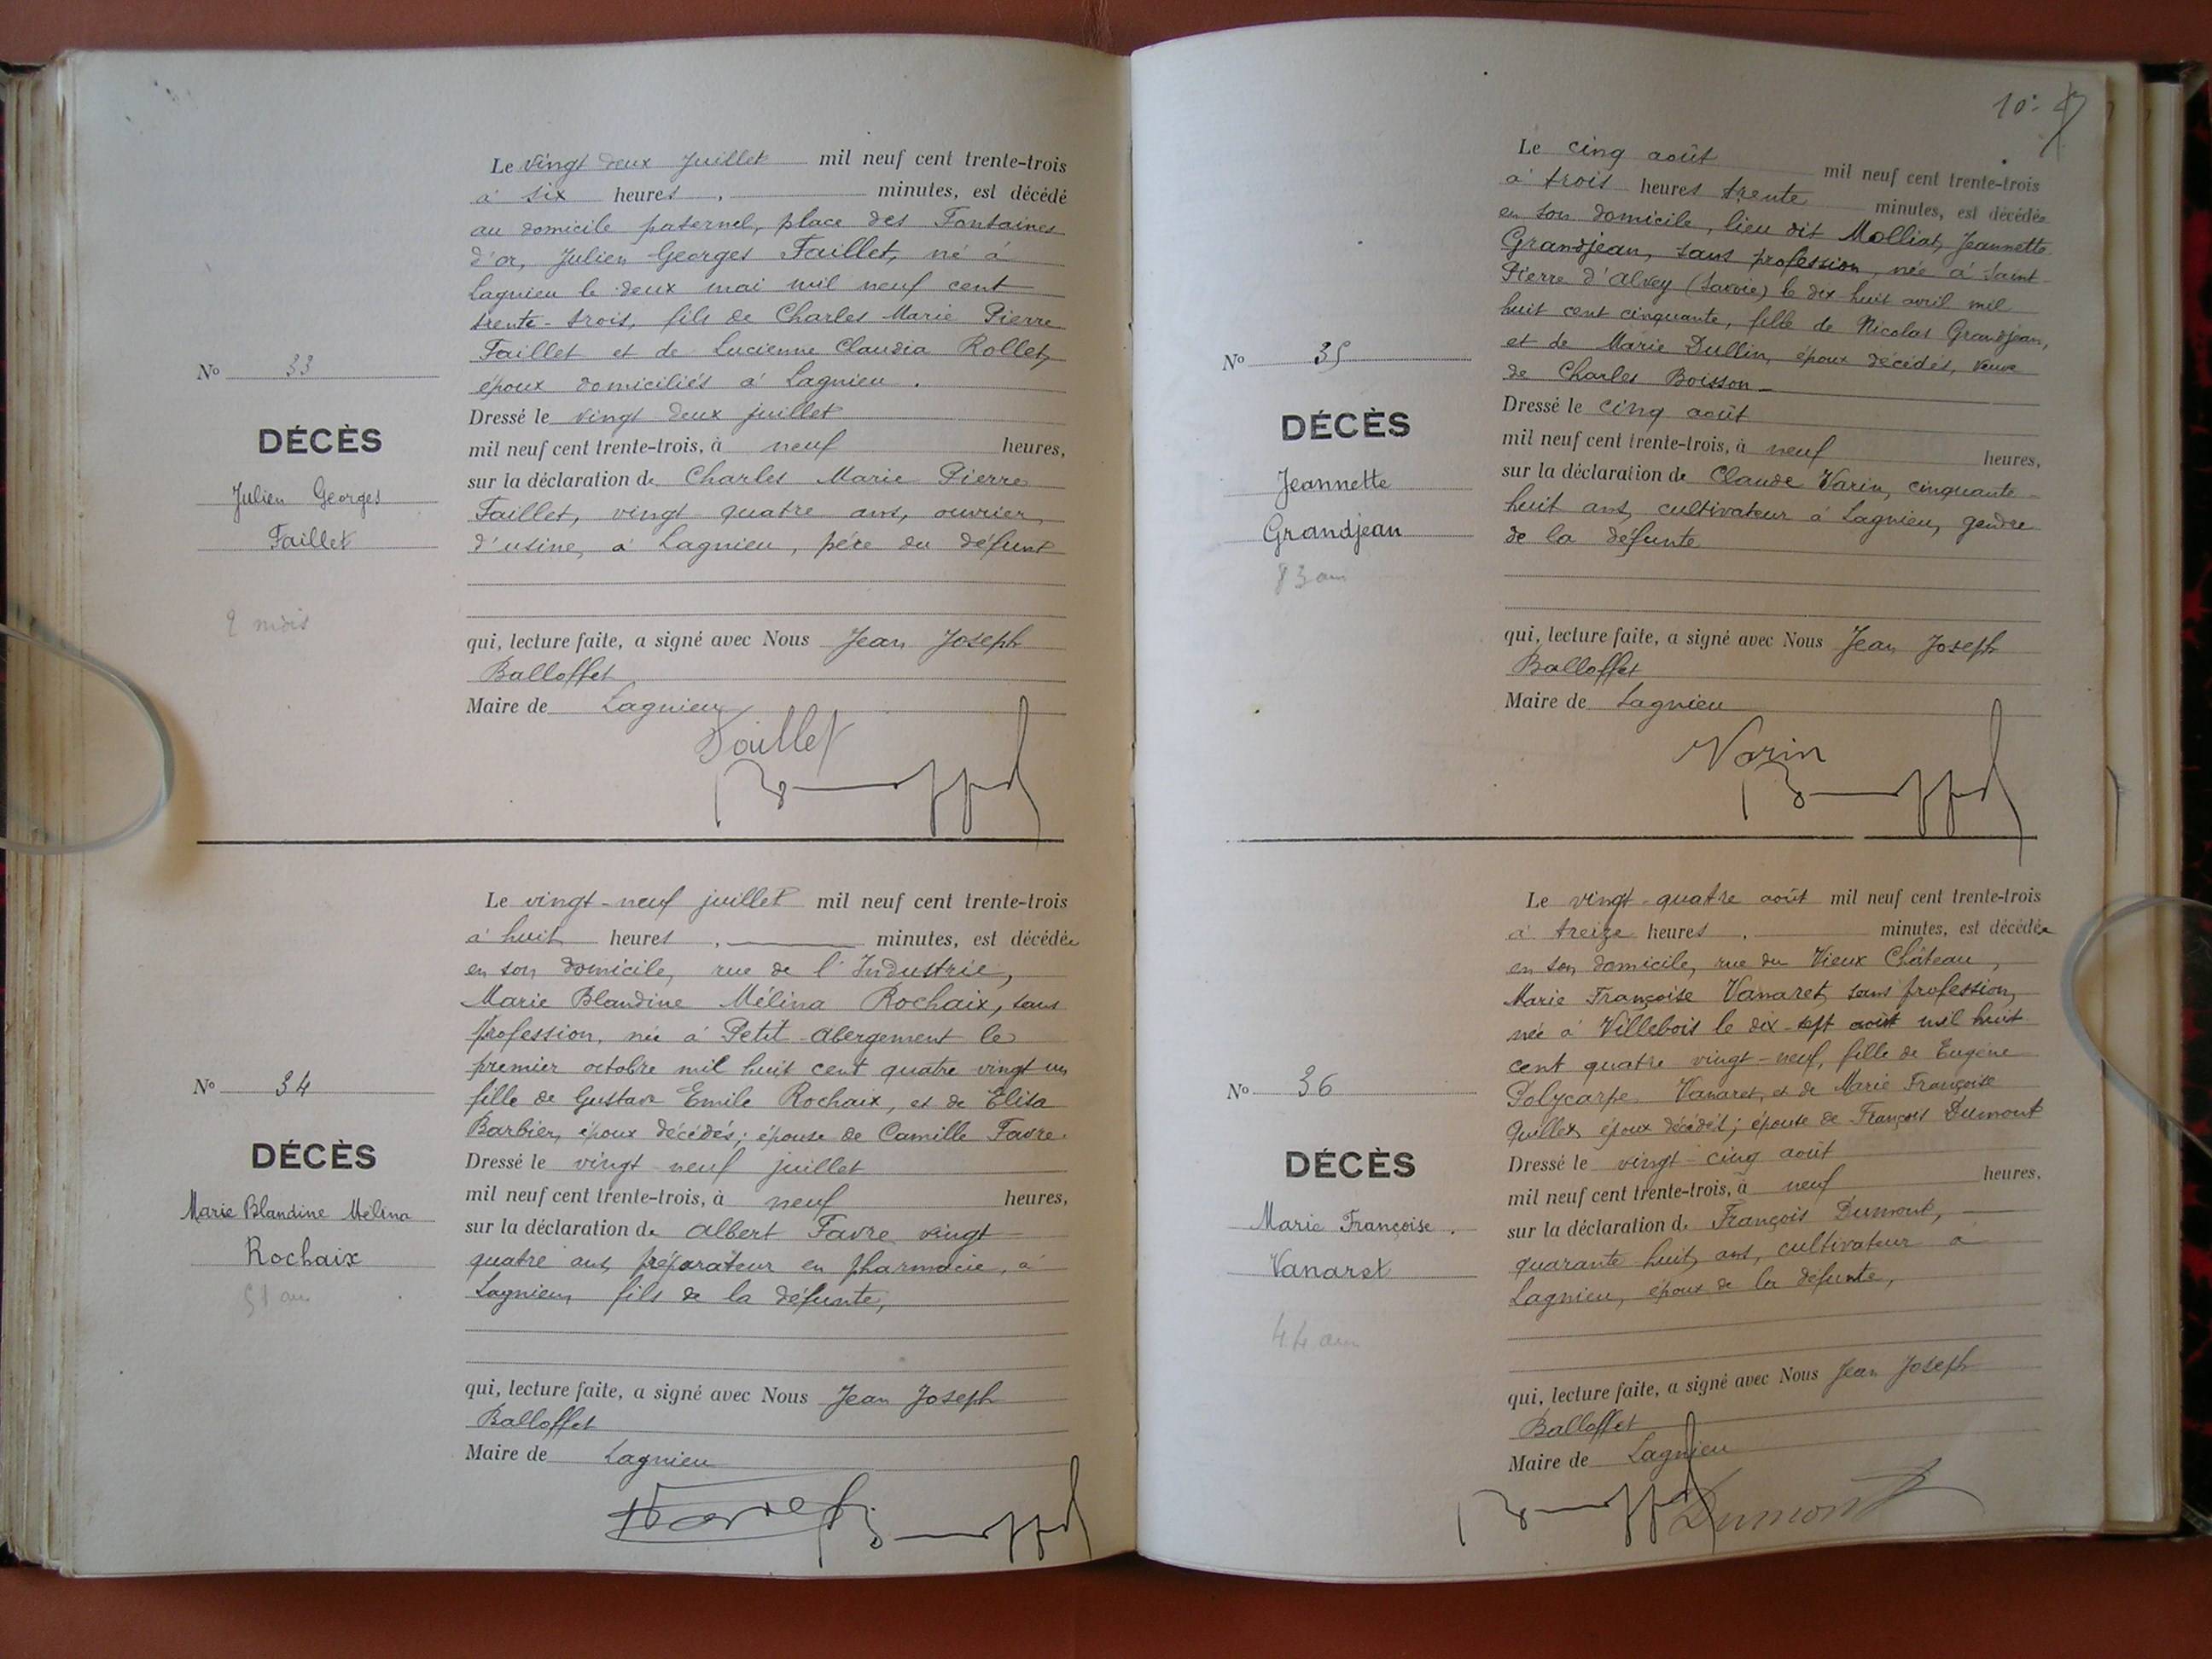 N° 33
DÉCÈS
Julien Georges
Faillet
2 mois
Le vingt deux juillet mil neuf cent trente-trois
à six heures, minutes, est décédé
au domicile paternel, place des Fontaines
d'or, Julien Georges Faillet, né à
Lagnieu le deux mai mil neuf cent
trente-trois, fils de Charles Marie Pierre
Faillet et de Lucienne Claudia Rollet,
époux domiciliés à Lagnieu.
Dressé le vingt deux juillet
mil neuf cent trente-trois, à neuf heures,
sur la déclaration de Charles Marie Pierre
Faillet, vingt quatre ans, ouvrier
d'usine, à Lagnieu, père du défunt
qui, lecture faite, a signé avec Nous Jean Joseph
Balloffet
Maire de Lagnieu
Faillet
N° 34
DÉCÈS
Marie Blandine Mélina
Rochaix
51 ans
Le vingt-neuf juillet mil neuf cent trente-trois
à huit heures, minutes, est décédée
en son domicile, rue de l'Industrie,
Marie Blandine Mélina Rochaix, sans
profession, née à Petit Abergement le
premier octobre mil huit cent quatre vingt un
fille de Gustave Emile Rochaix, et de Elisa
Barbier, époux décédés; épouse de Camille Favre.
Dressé le vingt neuf juillet
mil neuf cent trente-trois, à neuf heures,
sur la déclaration de Albert Favre vingt
quatre ans, préparateur en pharmacie, à
Lagnieu, fils de la défunte,
qui, lecture faite, a signé avec Nous Jean Joseph
Balloffet
Maire de Lagnieu
Favre
N° 35
DÉCÈS
Jeannette
Grandjean
83 ans
Le cinq août mil neuf cent trente-trois
à trois heures trente minutes, est décédée
en son domicile, lieu dit Molliat, Jeannette
Grandjean, sans profession, née à Saint
Pierre d'Alvey (Savoie) le dix huit avril mil
huit cent cinquante, fille de Nicolas Grandjean,
et de Marie Dullin, époux décédés, veuve
de Charles Boisson
Dressé le cinq août
mil neuf cent trente-trois, à neuf heures,
sur la déclaration de Claude Varin, cinquante
huit ans, cultivateur à Lagnieu, gendre
de la défunte
qui, lecture faite, a signé avec Nous Jean Joseph
Balloffet
Maire de Lagnieu
Varin
N° 36
DÉCÈS
Marie Françoise
Vanaret
44 ans
Le vingt-quatre août mil neuf cent trente-trois
à treize heures, minutes, est décédée
en son domicile, rue du Vieux Château,
Marie Françoise Vanaret, sans profession,
née à Villebois le dix-sept août mil huit
cent quatre vingt-neuf, fille de Eugène
Polycarpe Vanaret, et de Marie Françoise
Quillet, époux décédés; épouse de François Dumont
Dressé le vingt-cinq août
mil neuf cent trente-trois, à neuf heures,
sur la déclaration de François Dumont,
quarante huit ans, cultivateur à
Lagnieu, époux de la défunte,
qui, lecture faite, a signé avec Nous Jean Joseph
Balloffet
Maire de Lagnieu
Dumont